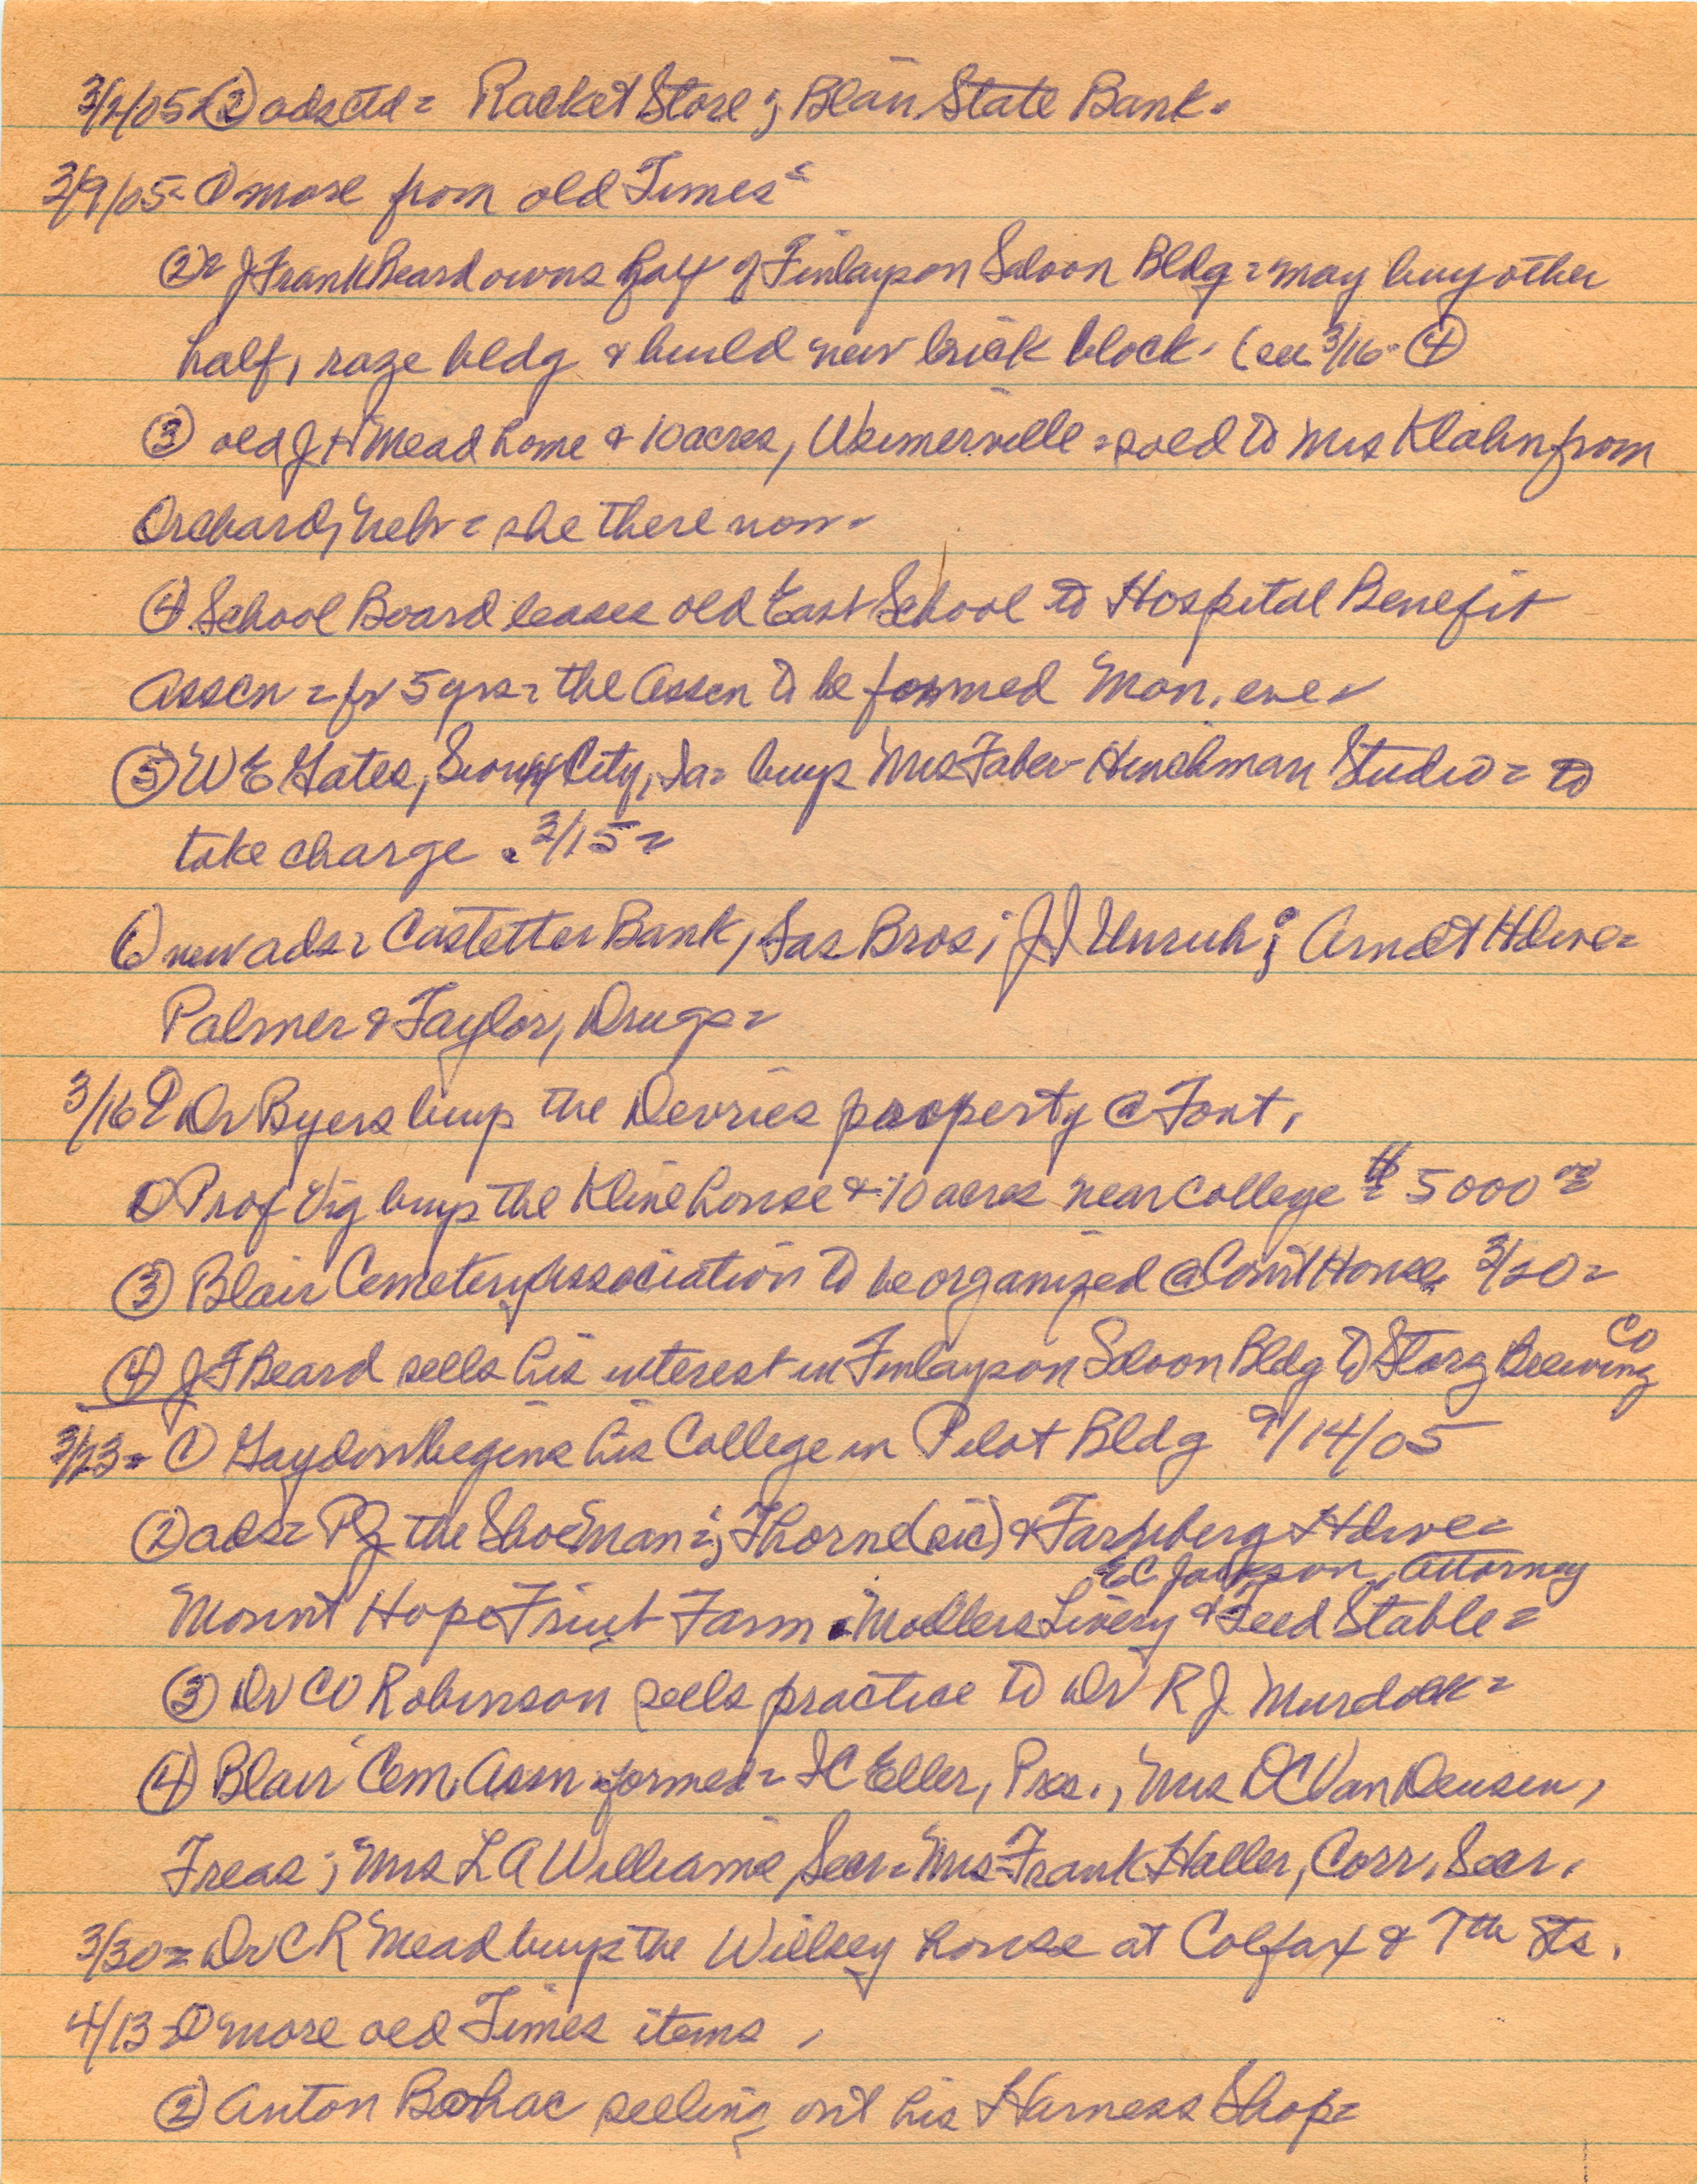 3/2/05 = ② ads ctd = Racket Store; Blair State Bank =
3/9/05 = ① more from old Times =
② = J Frank Beard owns half of Finlayson Saloon Bldg = may buy other
half, raze bldg & build new brick block. (see 3/16 - ④
③ old J H Mead home & 10 acres, Weimerville = sold to Mrs Klahn from
Orchard, Nebr = she there now =
④ School Board leases old East School to Hospital Benefit
Asscn = for 5 yrs = the Asscn to be formed Mon. eve =
⑤ W E Gates, Sioux City, Ia = buys Mrs Faber-Hinchman Studio = to
take charge 3/15 =
⑥ new ads = Castetter Bank, Sas Bros; J J Unruh; Arndt Hdwe =
Palmer & Taylor, Drugs =
3/16 ① Dr Byers buys the Devries property @ Font.
② Prof Vig buys the Kline house & 10 acres near College $5000 00
③ Blair Cemetery Association to be organized @ Court House 3/20 =
④ J F Beard sells his interest in Finlayson Saloon Bldg to Storz Brewing Co
3/23 = ① begins his College in Pilot Bldg 9/14/05
② ads = the Shoe Man =; Thorne (sic) & Farnberg Hdwe =
E C Jackson, Attorney
Mount Hope Fruit Farm Moellers Livery & Feed Stable =
③ Dr C O Robinson sells practice to Dr R J Murdock =
④ Blair Cem. Assn formed = I C Eller, Pres., Mrs D C Van Deusen,
Treas; Mrs L A Williams Secr = Mrs Frank Haller, Corr. Secr.
3/30 = Dr C R Mead buys the Willsey house at Colfax & 7th Sts.
4/13 = ① more old Times items,
② Anton Bohac selling out his Harness Shop =